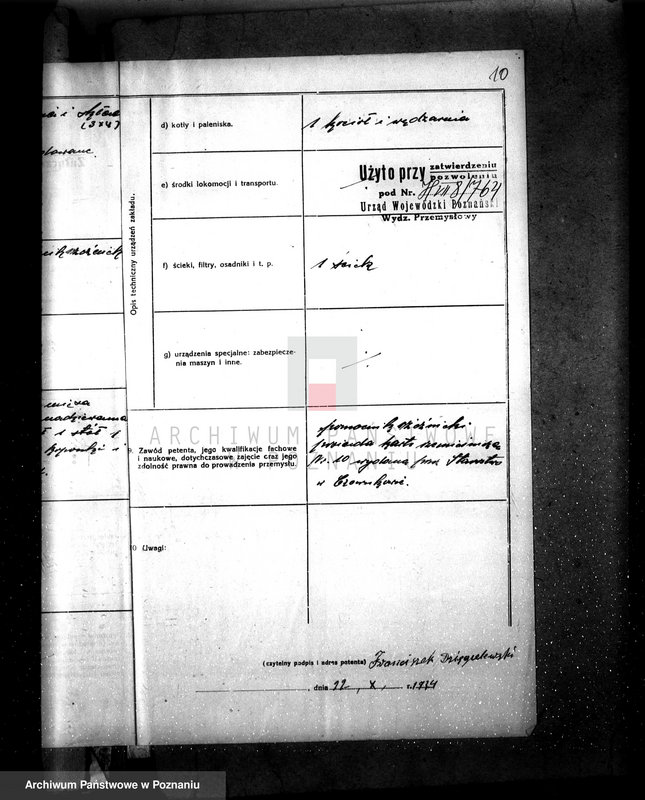 10
Opis techniczny urządzeń zakładu.
d) kotły i paleniska.
1 kocioł i wędzarnia
e) środki lokomocji i transportu.
Użyto przy zatwierdzeniu
pozwoleniu
pod Nr.
Urząd Wojewódzki Poznański
Wydz. Przemysłowy
f) ścieki, filtry, osadniki i t. p.
1 ściek
g) urządzenia specjalne: zabezpiecze-
nia maszyn i inne.
ARCHIWUM PAŃSTWOWE
W POZNANIU
9. Zawód petenta, jego kwalifikacje fachowe
i naukowe, dotychczasowe zajęcie oraz jego
zdolność prawna do prowadzenia przemysłu.
posiada kartę rzemieślniczą
Nr. 10 wydaną prze Starostwo
w Czarnkowie.
10 Uwagi:
(czytelny podpis i adres petenta) Franciszek
, dnia 22. X. r. 1934
Archiwum Państwowe w Poznaniu